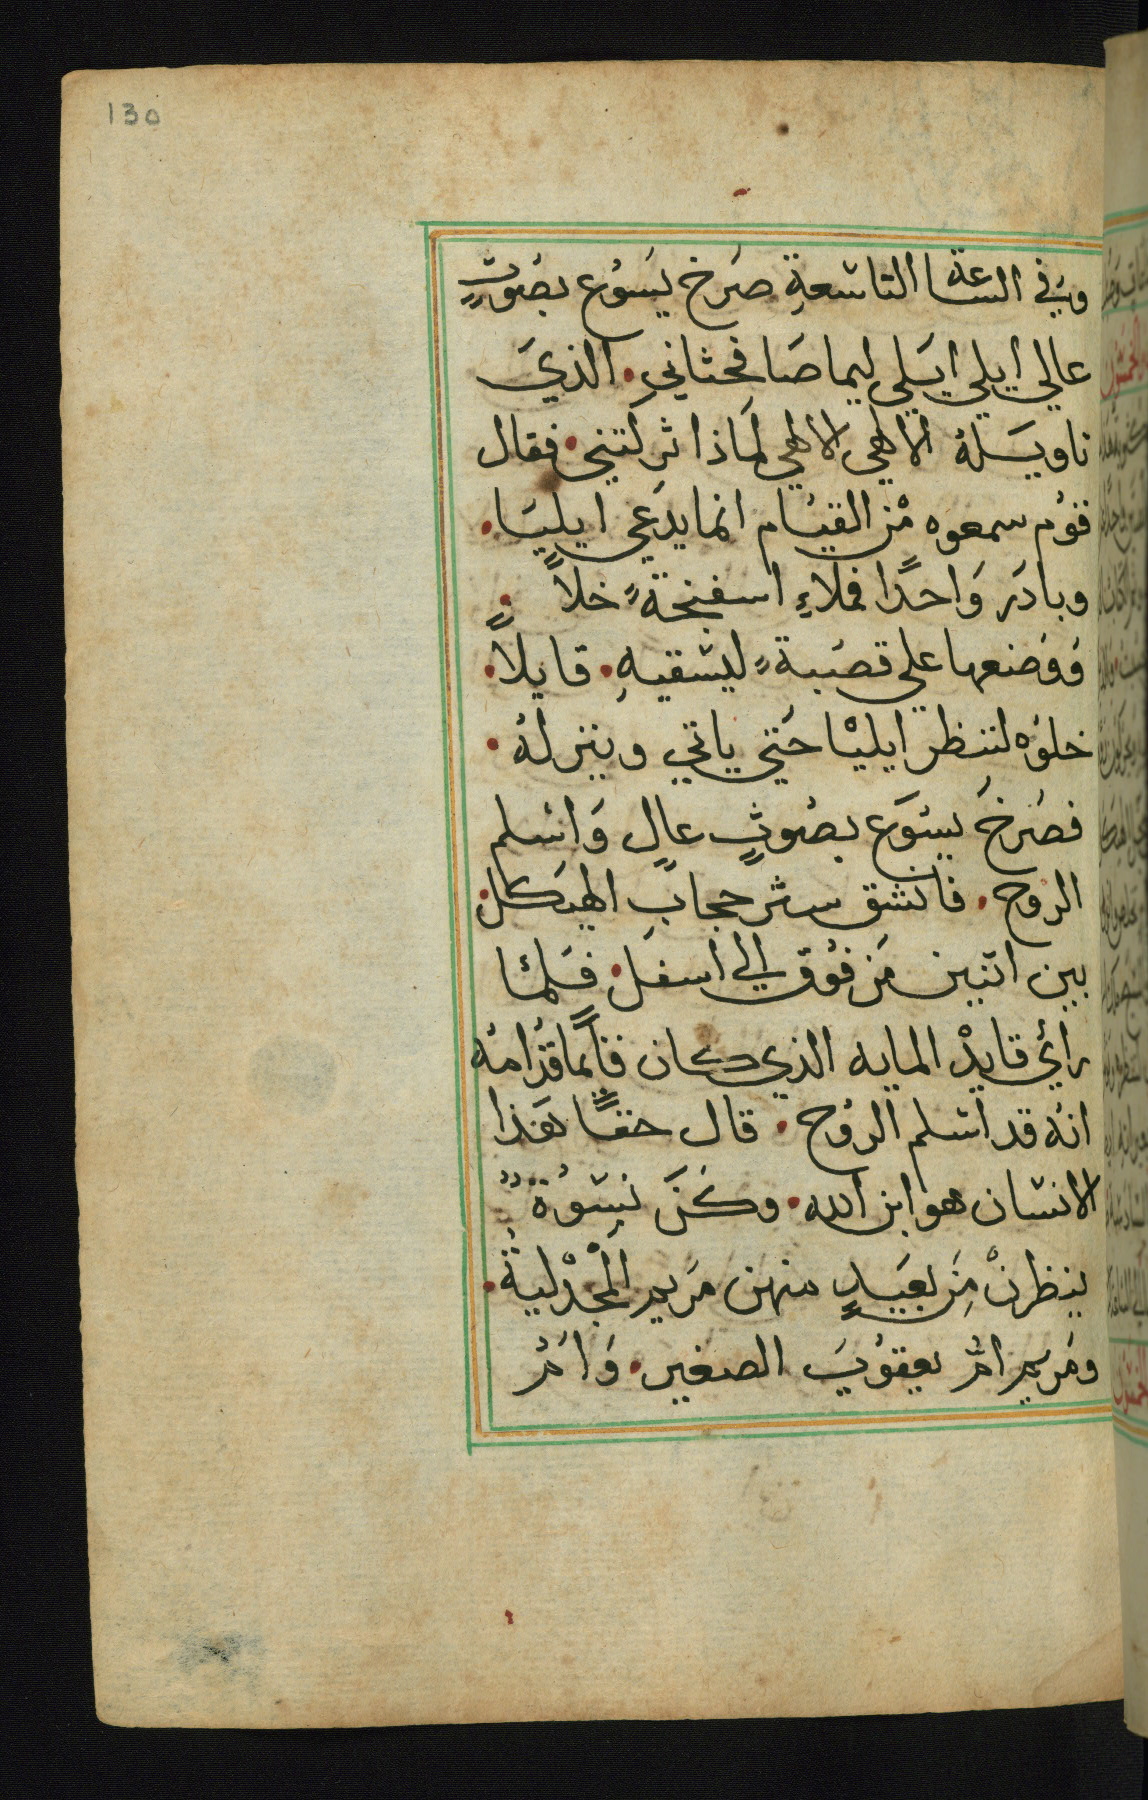 130
وفي الساعة التاسعةِ صَرخ يَسَوُع بصَوتٍ
عالي ايلي ايَلي ليما صَافحثاني. الذيَ
تاويَسَلهُ الاهي الاهي لمَاذا ثركتني. فقال
قوُم سمعوه مْن القيَام انما يدَعي ايليَا.
وبادَر وَاحدًا فملاءِ اسفنجةً خلاً.
وَوَضعها علي قصَبةً ليسَقيهِ. قايلاً.
خلوُه لننظر ايليْا حَتي ياتي وينزلهُ.
فصَرخَ يسَوَع بصَوثٍ عالٍ وَاسَلم
الروُح. فانشق سثر حجابِ الهيَكل.
بين اثنين مَن فوُق الي اسفل. فلمَا
رائي قايدْ المايه الذي كان قاَيمًا قدُامهُ
انهُ قد اسَلم الروُح. قال حقًا هَذا
الانسَان هو ابن الله. وكنَ نسَوُةٌ
ينظرنْ مِن بعَيدٍ منهن مَريم الْمجدْليةُ.
ومَريم امُ يعقوُبَ الصغير. وَامُ